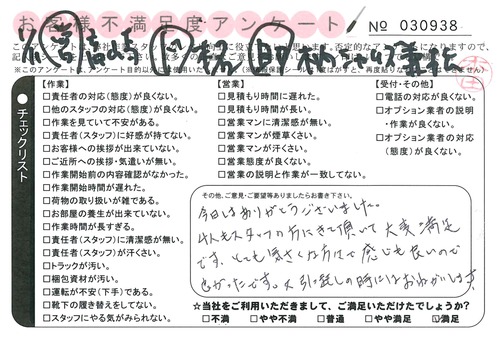 お客様不満足度アンケート
No 030938
チェックリスト
【作業】
□責任者の対応(態度)が良くない。
□他のスタッフの対応(態度)が良くない。
□作業を見ていて不安がある。
□責任者(スタッフ)に好感が持てない。
□お客様への挨拶が出来ていない。
□ご近所への挨拶・気遣いが無い。
□作業開始前の内容確認がなかった。
□作業開始時間が遅れた。
□荷物の取り扱いが雑である。
□お部屋の養生が出来ていない。
□作業時間が長すぎる。
□責任者(スタッフ)に清潔感が無い。
□責任者(スタッフ)が汗くさい。
□トラックが汚い。
□梱包資材が汚い。
□運転が不安(下手)である。
□靴下の履き替えをしてない。
□スタッフにやる気がみられない。
【営業】
□見積もり時間に遅れた。
□見積もり時間が長い。
□営業マンに清潔感が無い。
□営業マンが煙草くさい。
□営業マンが汗くさい。
□営業態度が良くない。
□営業の説明と作業が一致してない。
【受付・その他】
□電話の対応が良くない。
□オプション業者の説明
・作業が良くない。
□オプション業者の対応
(態度)が良くない。
その他、ご意見・ご要望等ありましたらお書き下さい。
今日はありがとうございました。
4人もスタッフの方にきて頂いて大変満足
です。とても気さくな方々で感じも良いので
良かったです。又引越しの時にはお願いします。
☆当社をご利用いただきまして、ご満足いただけたでしょうか?
□不満 □やや不満 □普通 □やや満足 ☑満足